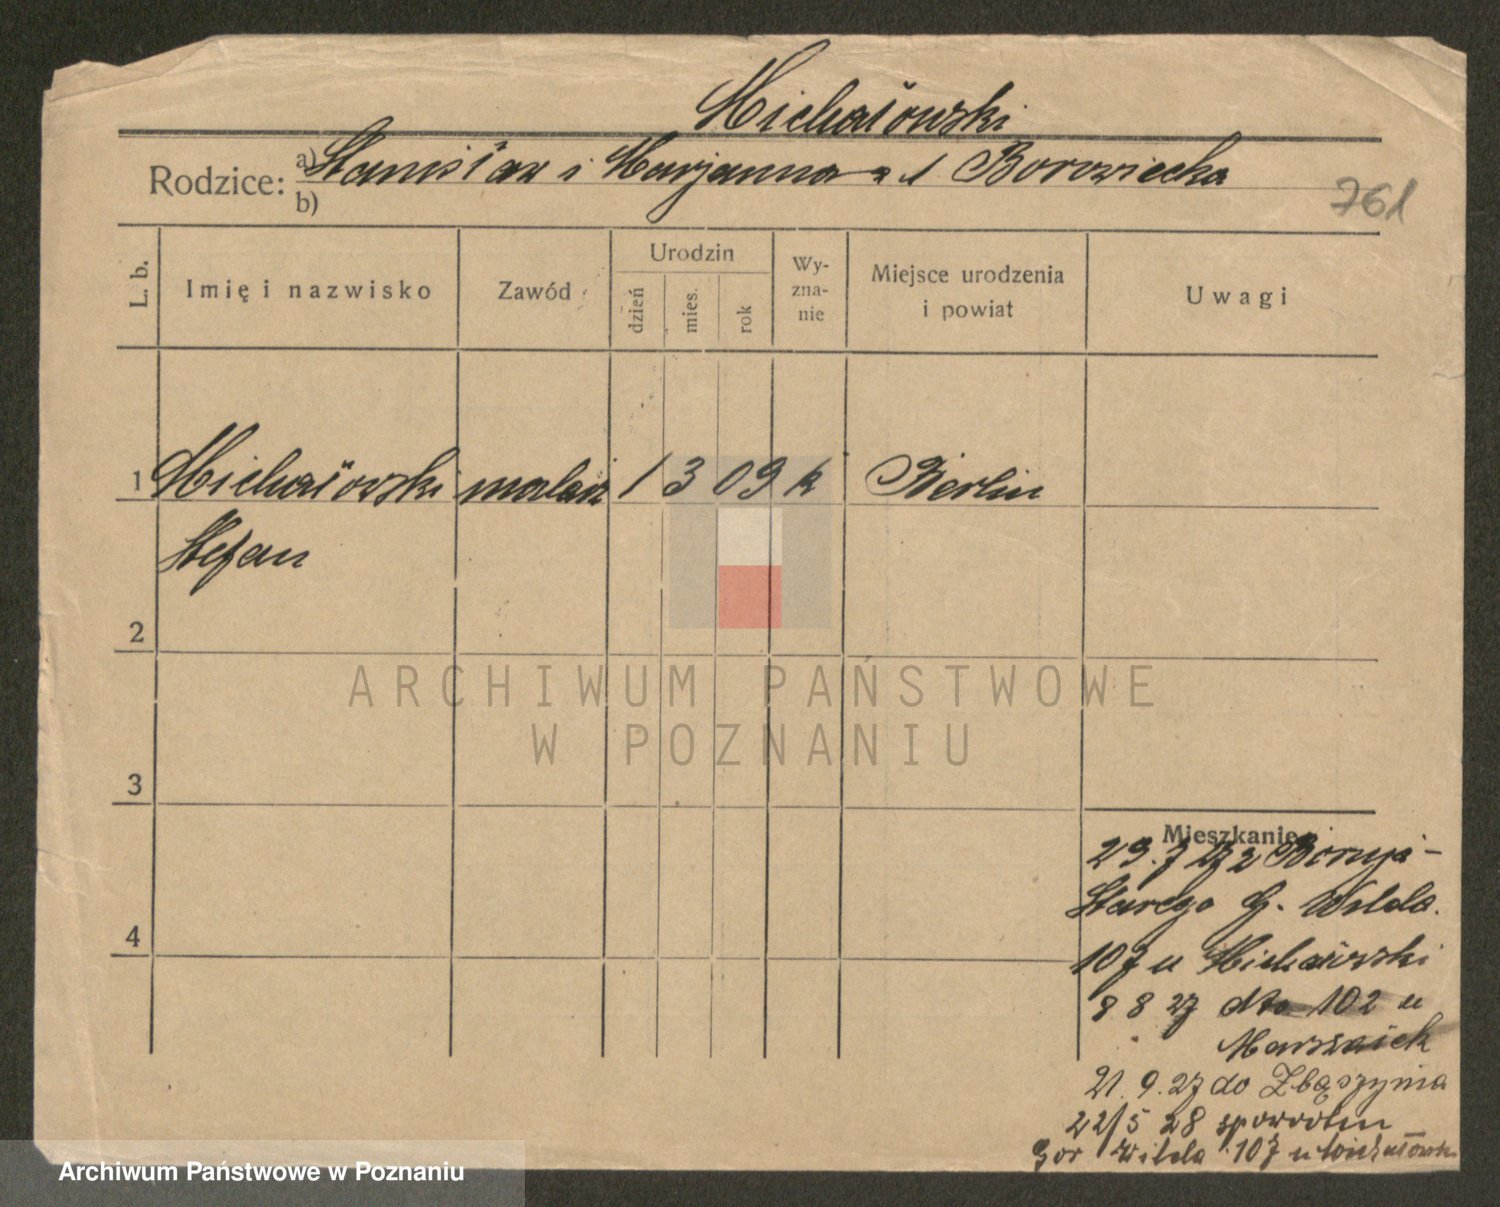 Michałowski
Rodzice: a) Stanisław i Marjanna z d Borowiecka
b)
761
L. b.
Imię i nazwisko
Zawód
Urodzin
dzień
mies.
rok
Wy-
zna-
nie
Miejsce urodzenia
i powiat
Uwagi
1 Michałowski malarz 1 3 09 k Berlin
Stefan
2
3
4
Mieszkanie
29.7 27 z Boruja
Starego G. Wilda.
107 u Michałowski
8 8 27 dto 102 u
Marszałek
21.9.27 do Zbąszynia
22/5 28 spowrotem
Gór Wilda 107 u Michałowski
ARCHIWUM PAŃSTWOWE
W POZNANIU
Archiwum Państwowe w Poznaniu